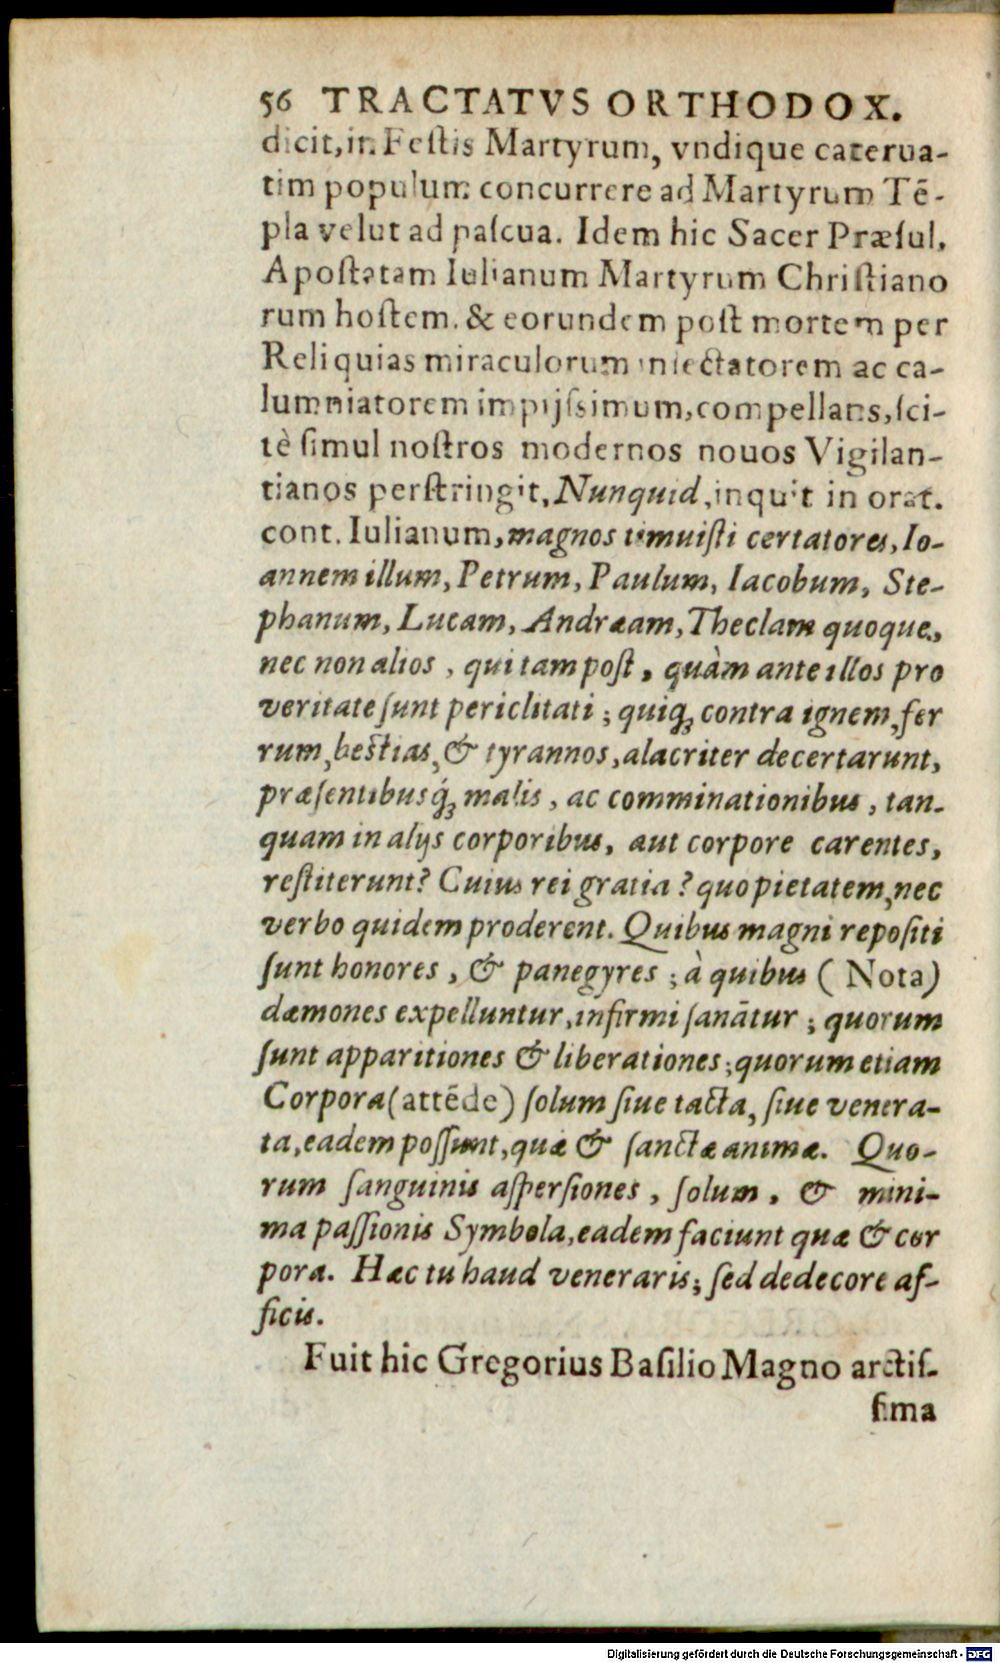 56 TRACTATVS ORTHODOX.
dicit, in Feſtis Martyrum, vndique caterua-
tim populum concurrere ad Martyrum Tē-
pla velut ad paſcua. Idem hic Sacer Præſul,
Apoſtatam Iulianum Martyrum Chriſtiano
rum hoſtem, & eorundem poſt mortem per
Reliquias miraculorum inſectatorem ac ca-
lumniatorem impijſsimum, compellans, ſci-
tè ſimul noſtros modernos nouos Vigilan-
tianos perſtringit, Nunquid, inquit in orat.
cont. Iulianum, magnos timuiſti certatores, Io-
annem illum, Petrum, Paulum, Iacobum, Ste-
phanum, Lucam, Andræam, Theclam quoque,
nec non alios, qui tam poſt, quàm ante illos pro
veritate ſunt periclitati; quiq́; contra ignem, fer
rum, beſtias, & tyrannos, alacriter decertarunt,
præſentibusq́; malis, ac comminationibus, tan-
quam in alijs corporibus, aut corpore carentes,
reſtiterunt? Cuius rei gratia? quo pietatem, nec
verbo quidem proderent. Quibus magni repoſiti
ſunt honores, & panegyres; à quibus (Nota)
dæmones expelluntur, infirmi ſanātur; quorum
ſunt apparitiones & liberationes; quorum etiam
Corpora (attēde) ſolum ſiue tacta, ſiue venera-
ta, eadem poſſunt, quæ & ſanctæ animæ. Quo-
rum ſanguinis aſperſiones, ſolum, & mini-
ma paſſionis Symbola, eadem faciunt quæ & cor
pora. Hæc tu haud veneraris; ſed dedecore af-
ficis.
Fuit hic Gregorius Baſilio Magno arctiſ-
ſima
Digitalisierung gefördert durch die Deutsche Forschungsgemeinschaft - DFG